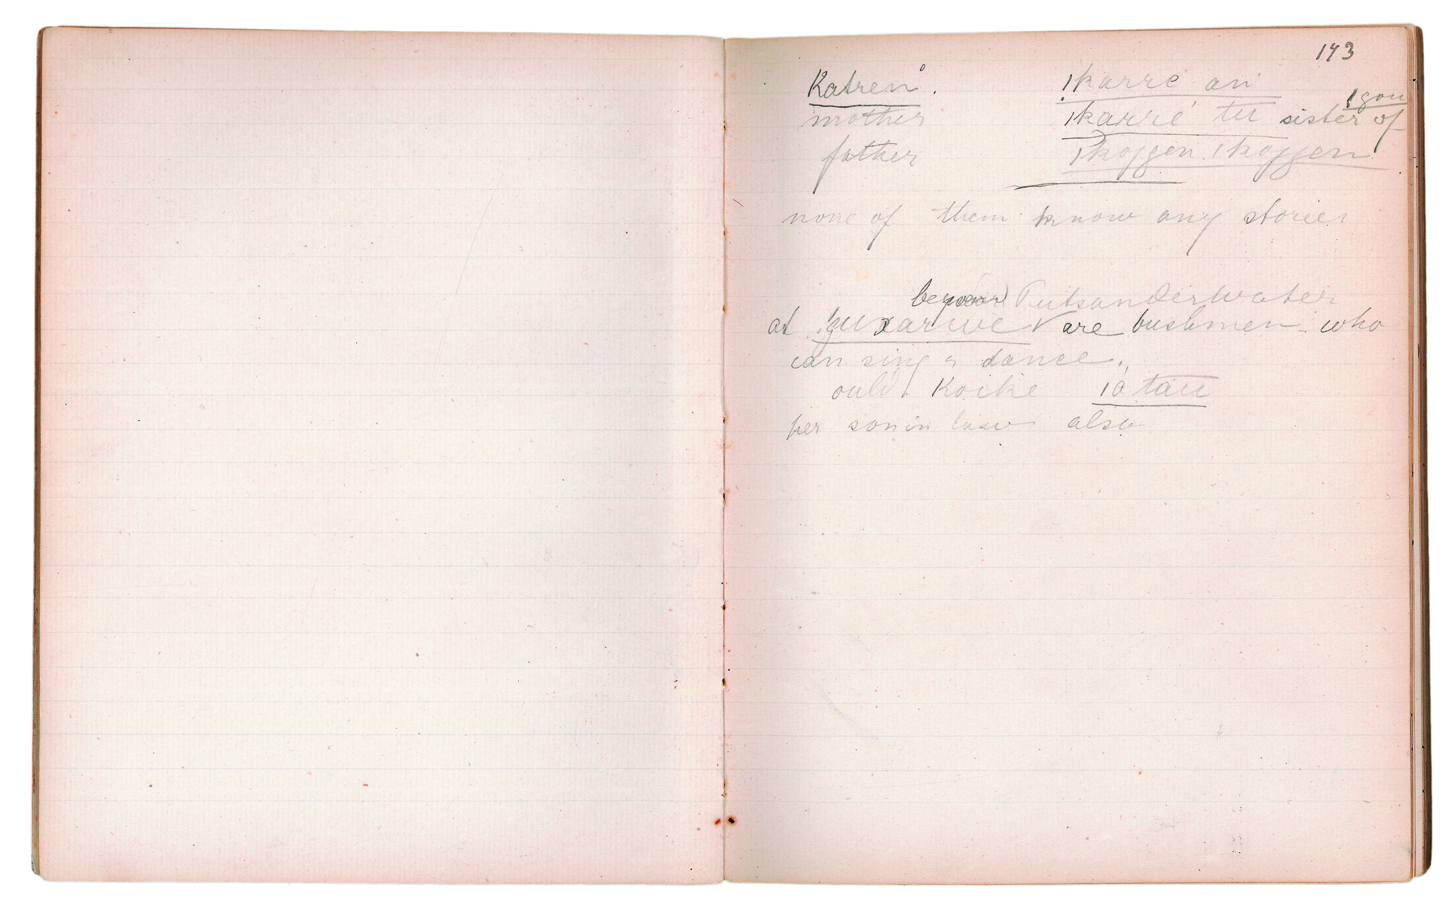 143
Katren. ǀkarre an
ǀgou
mother ǀkarré tu sister of
father ǀkoggen ǀkoggen
none of them know any stories
beyond Putsonderwater
at ǃguxarwe are bushmen who
can sing & dance.
ould Koike ǀa tau
her son in law also